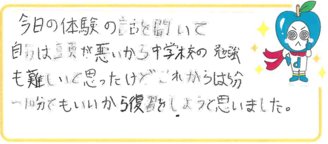 今日の体験の話を聞いて
自分は頭が悪いから中学校の勉強
も難しいと思ったけどこれからは5分
一分でもいいから復習をしようと思いました。
d